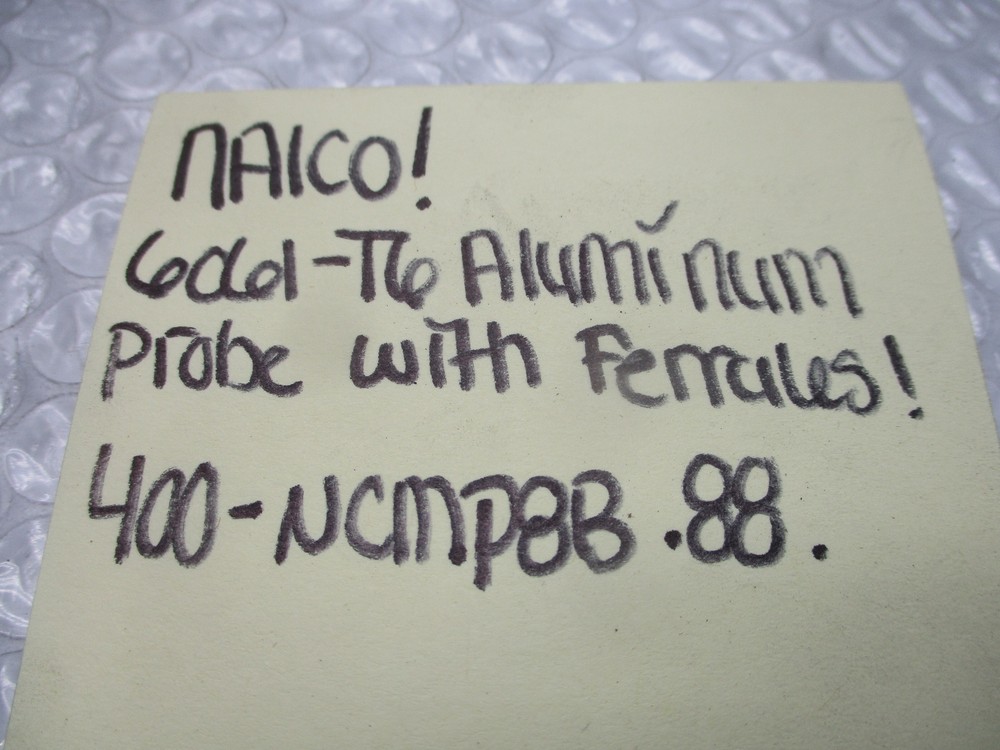 NAlco!
6061-T6 Aluminum
Probe with Ferrules!
400-NCMP8B .88.